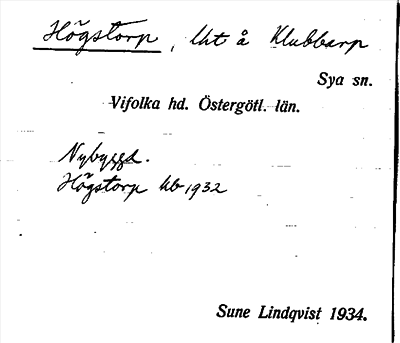 Högstorp, lht å Klubbarp
Sya sn.
Vifolka hd. Östergötl. län.
Nybyggd.
Högstorp kb 1932
Sune Lindqvist 1934.